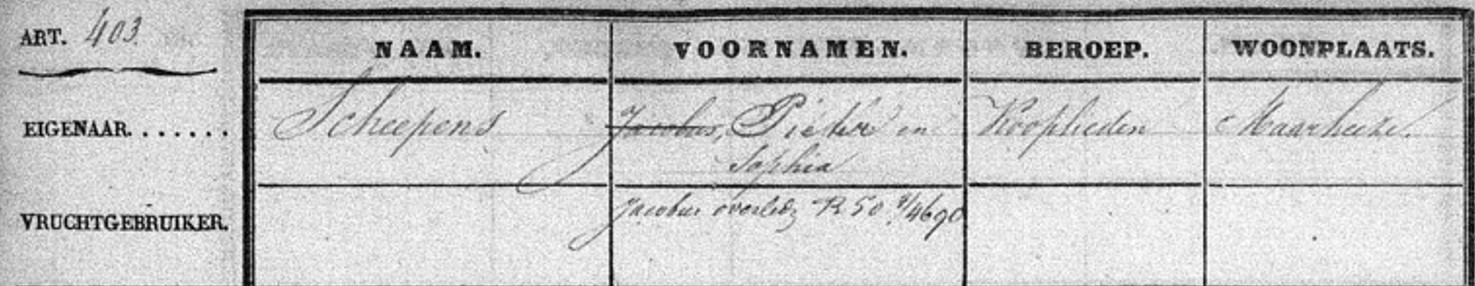 ART. 403.
NAAM. VOORNAMEN. BEROEP. WOONPLAATS.
EIGENAAR....... Scheepens Jacobus, Pieter en Kooplieden Maarheeze.
Sophia
VRUCHTGEBRUIKER. Jacobus overled R 50